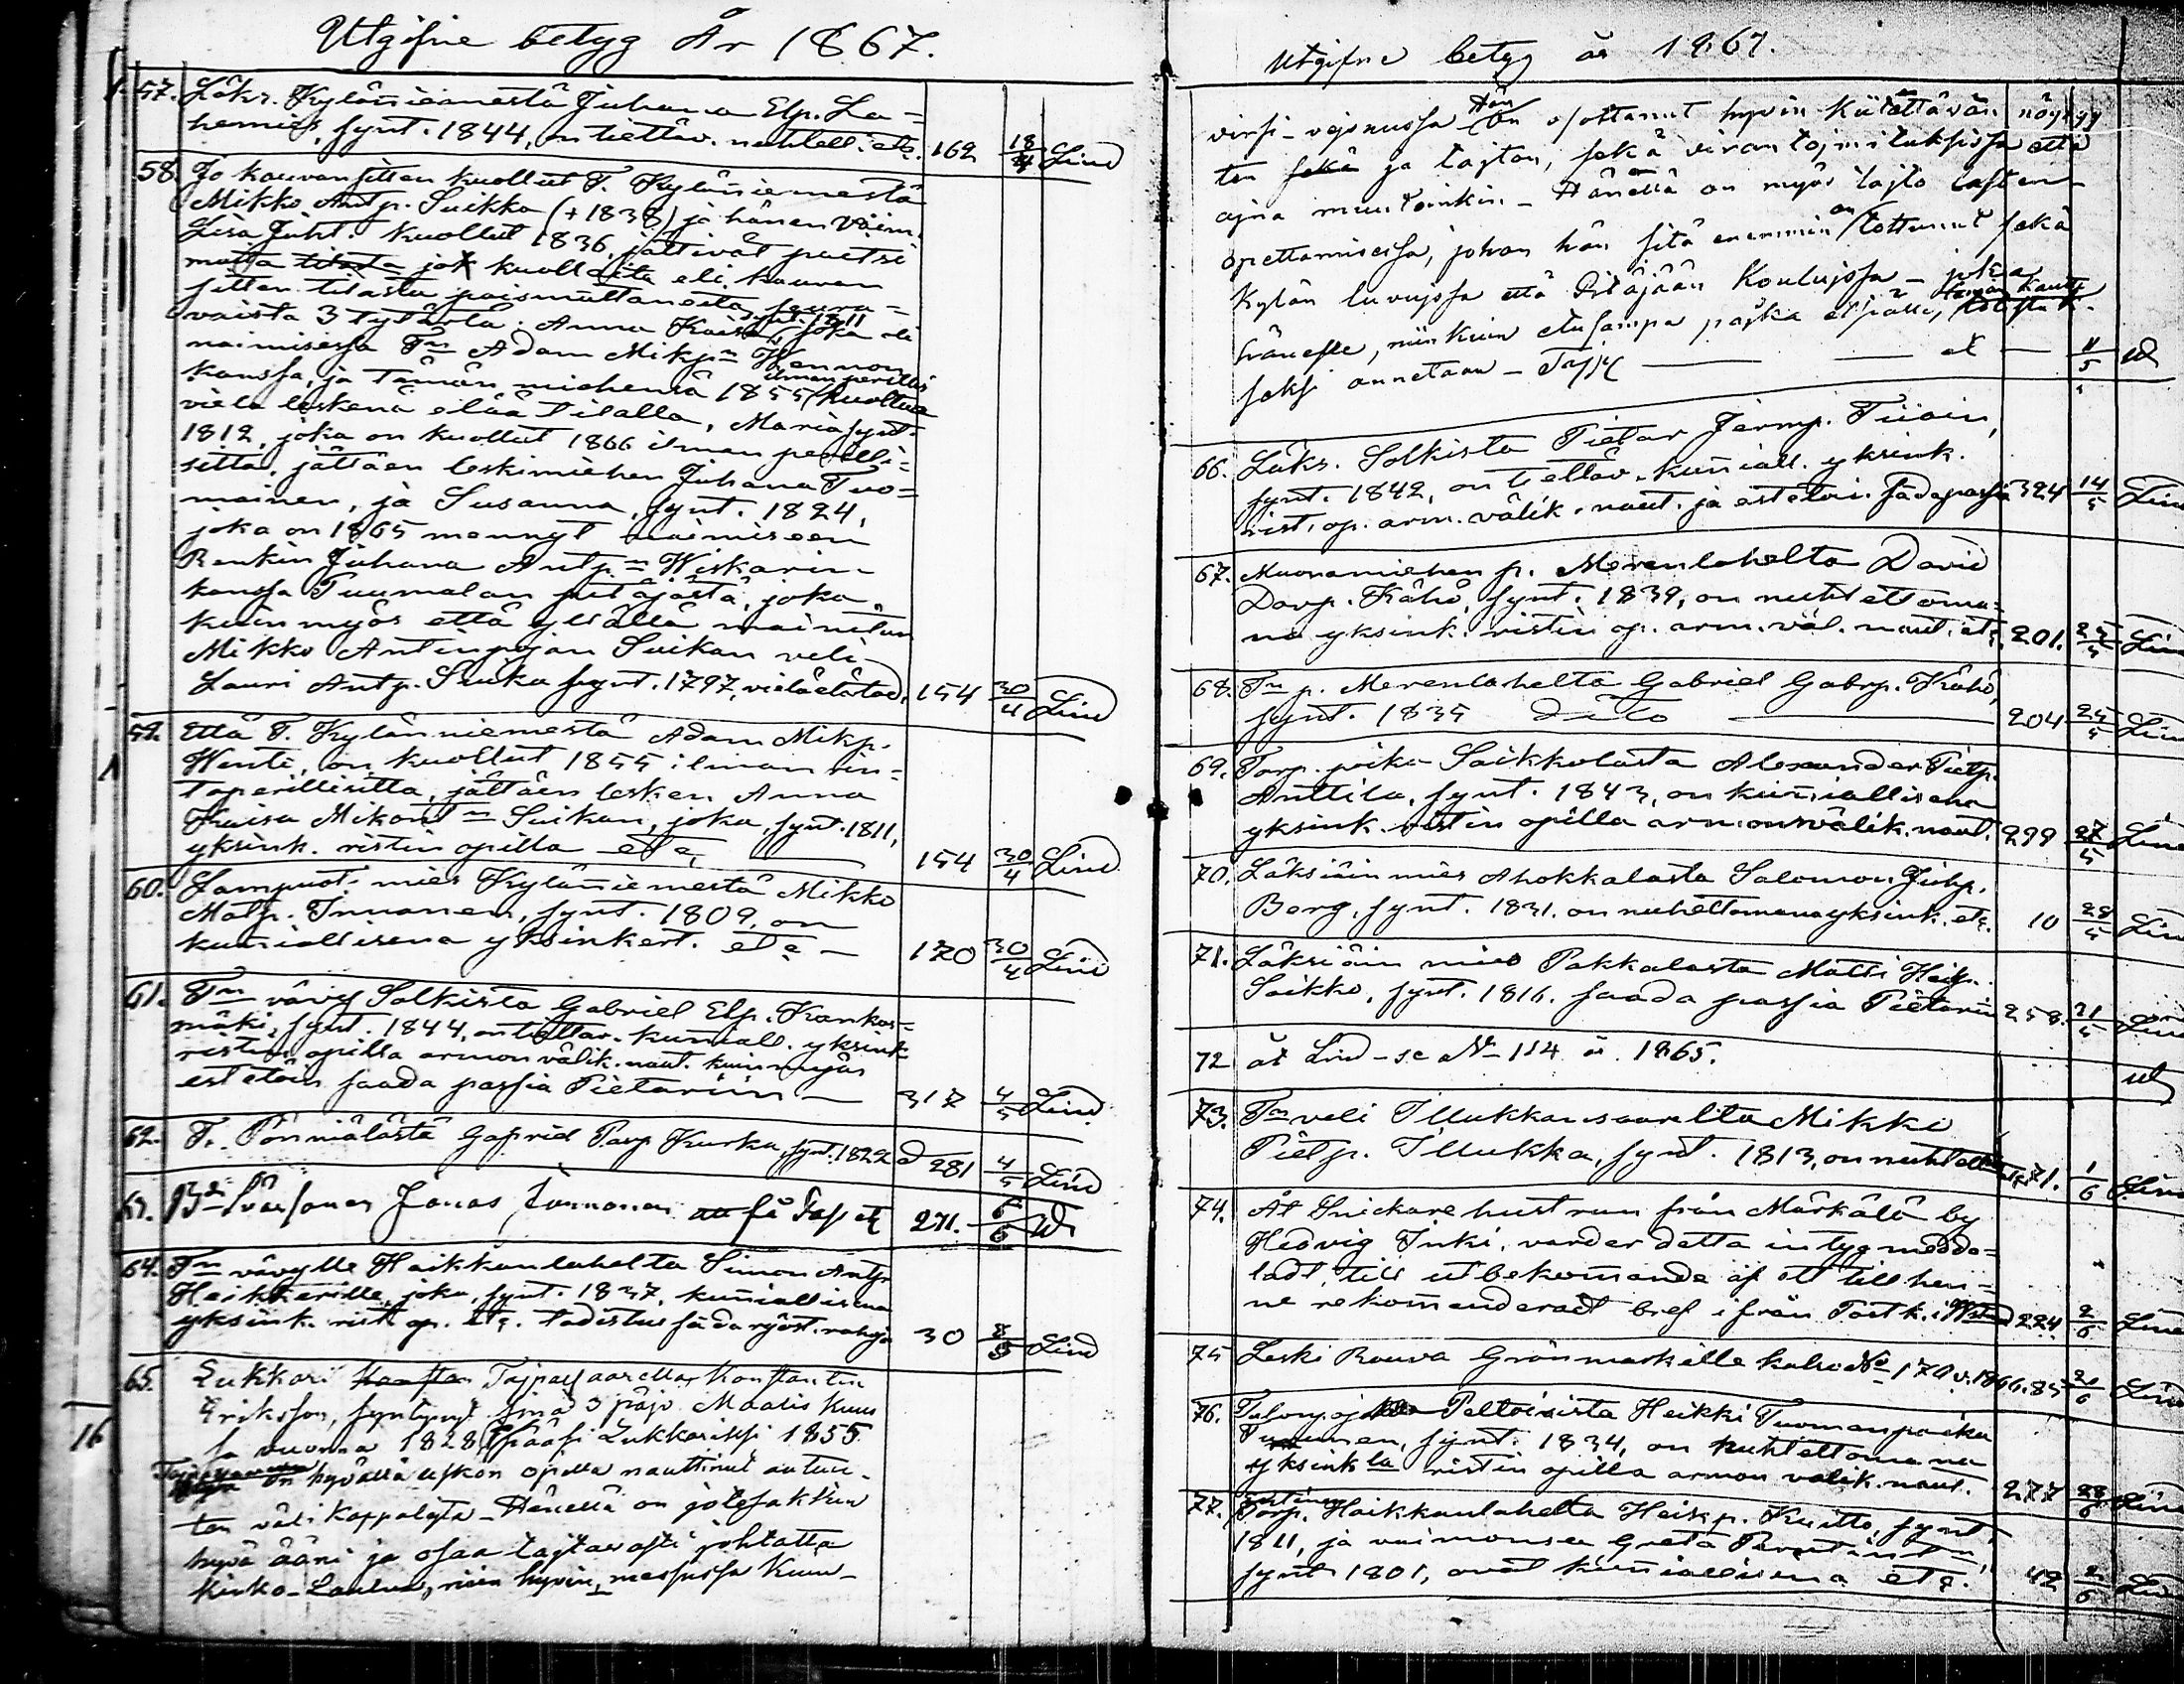 Utgifne betyg År 1867.
57. Läks. Kylänniemestä Juhana Elp. La-
hemies, synt. 1844, on tiettäv. nuhtell. etc. 162 18/4 Lind
58. Jo kauvan sitten kuollut T. Kylänniemestä
Mikko Antp. Suikka (+1838) ja hänen vaim.
Lisa Juht. kuollut 1836, jättivät paetsi
muita kuolleita eli kauvan
sitten tilasta poismuttaneita seura-
vaista 3 tytärtä: Anna Kaisa synt. 1811 joka oli
naimisessa Tn Adam Mikp:n Wennon
kanssa, ja tämän miehensä 1855 ilman perillis kuoltua
vielä leskenä elää tilalla, Maria synt.
1812, joka on kuollut 1866 ilman perilli-
sittä, jättäen leskimiehen Juhana Tuo-
mainen, ja Susanna, synt. 1824,
joka on 1865 mennyt naimiseen
Renkin Juhana Antp:n Wiskarin
kanssa Puumalan pitäjästä, joka
kuin myös että yllällä mainitun
Mikko Antinpojan Suikan veli
Lauri Antp. Suikka synt. 1797, vielä elävät. 154 30/4 Lind
59. Että T. Kylänniemestä Adam Mikp.
Wento, on kuollut 1855 ilman rin-
taperillisittä, jättäen lesken Anna
Kaisa Mikont:n Suikan, joka, synt. 1811,
yksink. ristin opilla etc. 154 30/4 Lind
60. Lampuoti mies Kylänniemestä Mikko
Matp. Innanen, synt. 1809, on
kunniallisena yksinkert. etc. — 170 30/4 Lind
61. Tn vävy Solkista Gabriel Elp. Kankas-
mäki, synt. 1844, on tiettäv. kuniall. yksink
ristin opilla armon välik. naut. kuin myös
estetöin saada passia Pietariin — 317 4/5 Lind
62. T. Pönniälästä Gabriel Paap Kurka, synt. 1822 281 4/5 Lind
63. Jonas att få Pass etc 271. 6/6
64. Tn vävylle Haikkanlahelta Simon Antp
Heikkerille, joka, synt. 1837, kunniallisena
yksink. rist. op. etc. todistus sada ryöst. rahoja 30 8/5 Lind
65. Lukkari Taipalsaarella, Konstantin
Eriksson, syntynyt sinä 3 päjv. Maalis kuus
sa vuonna 1828, pääsi Lukkariksi 1855
on hyvällä uskon opilla nauttinut autuu-
ten väli kappaleita — Hänellä on jotesakkin
hyvä ääni ja osaa taitavasti johtatta
kirko-Laulua, niin hyvin messussa kuin
Utgifne betyg år 1867.
virsi-vejsuussa Hän on osottanut hyvin kiitättävän nöyryy
ten ja tajton, sekä viran toimituksissa että
ajna muutoinkin — Hänellä on myös tajto lasten
opettamisessa, johon hän sitä enemmin on tottunut sekä
kylän luvujssa että Pitäjään Koulujssa — joka
hänelle, niinkuin
saksi annetaan — — 11/5
66. Läks. Solkista Pietar Jermp. Tiiain,
synt. 1842, on tiettäv. kuniall. yksink.
rist. op. arm. välik. naut. ja estetöi. sada passia 324 14/5 Lind
67. Muonamiehen p. Merenlahelta David
Davp. Kähö, synt. 1839, on nuhtettoma-
na yksink. ristin op. arm. väl. naut. etc. 201. 25/5 Lind
68. Tn p. Merenlahelta Gabriel Gabrp. Kähö,
synt. 1835 dito — 204 25/5 Lind
69. Torp. poika Saikkolasta Alexander Pietp.
Anttila, synt. 1843, on kunniallisena
yksink. ristin opilla armon välik. naut. 299 27/5 Lind
70. Läksiäin mies Ahokkalasta Salomon Juhp.
Borg, synt. 1831. on nuhettomana yksink. etc. 10 28/5 Lind
71. Läksiäin mies Pakkalasta Matti Heikp.
Saikko, synt. 1816. saada passia Pietariin 258. 31/5 Lind
72 åt Lind — se No 114 år 1865.
73. Tn veli Illukkansaarelta Mikki
Pietp. Illukka, synt. 1813, on nuhtell 71. 1/6 Lind
74. Åt Snickare hustrun från Märkälä by
Hedvig Inki, varder detta intyg medde-
ladt, till utbekommande af ett till hen-
ne rekommenderadt bref ifrån Postk. i 224. 2/6 Lind
75 Leski Rouva Grönmarkille katso No 170 v. 1866. 85 2/6 Lind
76. Peltoisista Heikki Tuomanpoika
synt. 1834, on nuhtettomana
yksink la ristin opilla armon välik. naut. 277 Lind
77. Torp. Haikkanlahelta Heiskp. Kuitto, synt
1811, ja vaimonsa Greta
synt 1801, ovat kunniallisena etc. 42 2/6
16